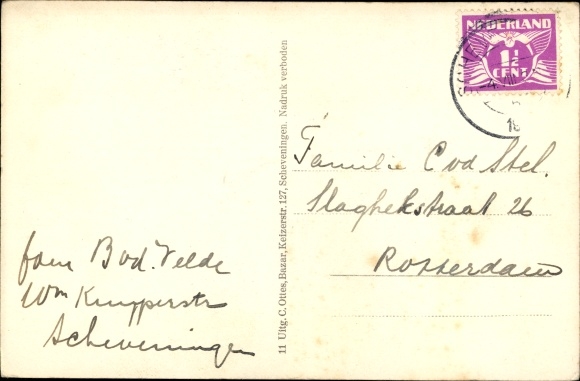 NEDERLAND
1½
CENT
Familie C vd Stel.
Slaghekstraat 26
Rotterdam
fam B v d. Velde
Wm Kuyperstr
Scheveningen
11 Uitg. C. Ottes, Bazar, Keizerstr. 127, Scheveningen. Nadruk verboden